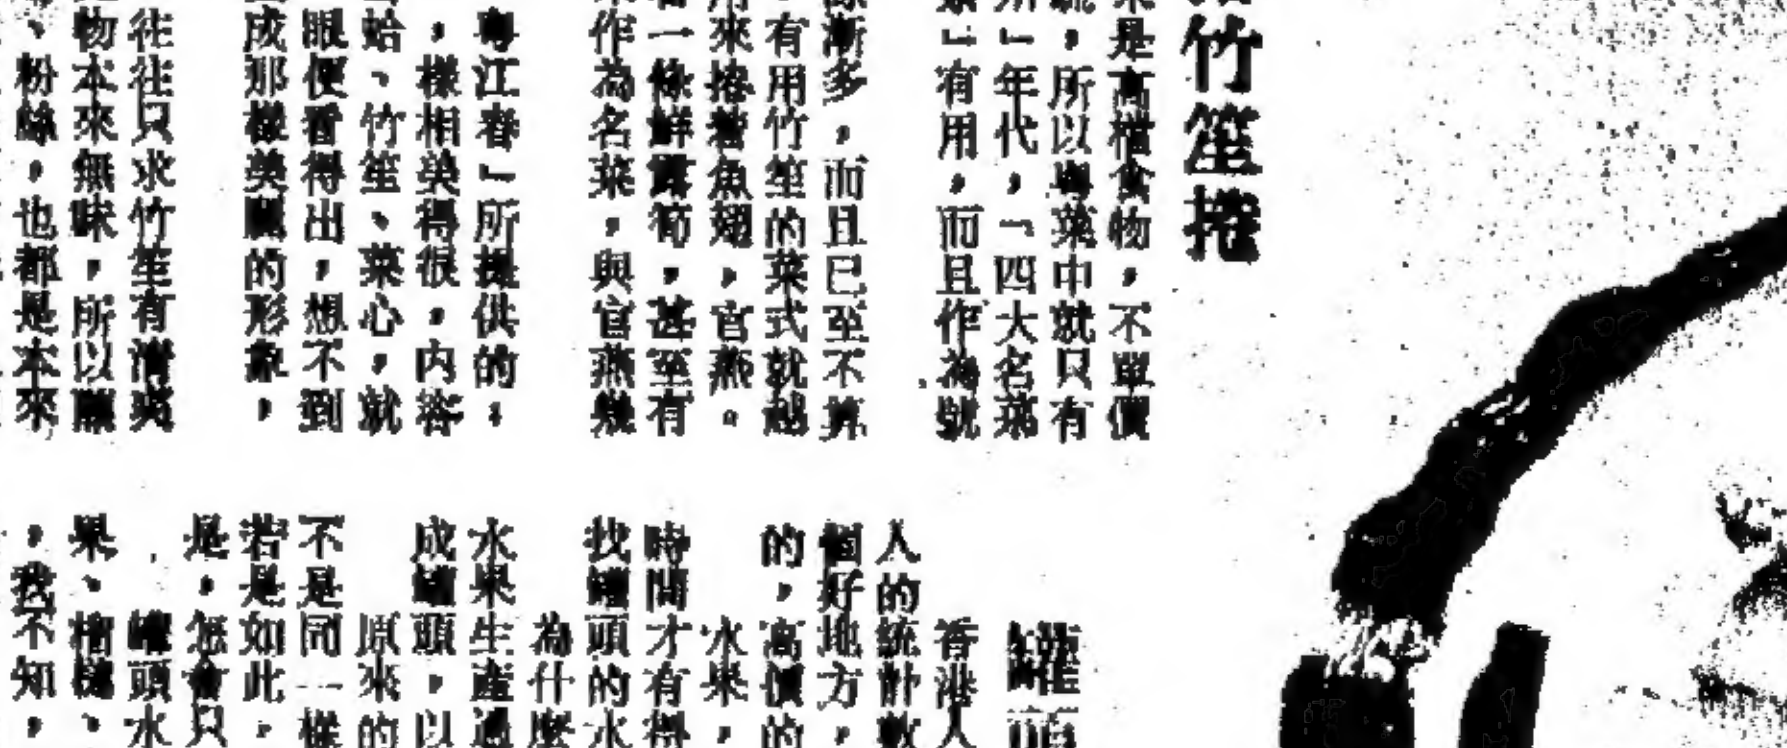 竹笙捲
是高檔食物,不單價
,所以粵菜中就只有
」年代,「四大名菜
」有用,而且作為號
漸多,而且已至不算
有用竹笙的菜式就越
來捲着魚翅,官燕。
一條鮮露筍,甚至有
作為名菜,與官燕幾
粵江春」所提供的,
,樣相美得很,內容
蛤、竹笙、菜心,就
眼便看得出,想不到
成那樣美麗的形象,
往往只求竹笙有清爽
物本來無味,所以釀
、粉絲,也都是本來
罐頭
香港人
人的統計數
個好地方,
的,高價的
水果,
時間才有得
找罐頭的水
為什麼
水果生產過
成罐頭,以
原來的
不是同一樣
若是如此,
是,怎會只
罐頭水
果、榴槤、
,我不知,